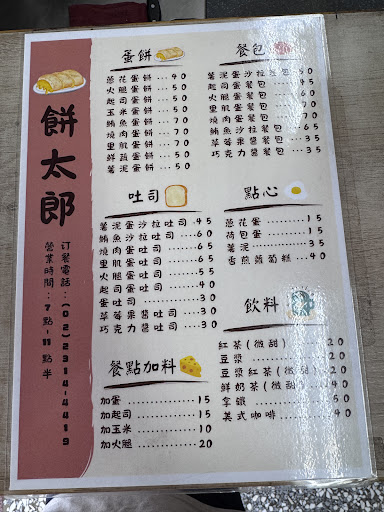 餅太郎
訂餐電話:(02)2314-4419
營業時間:7點-11點半
蛋餅
蔥花蛋餅...40
火腿蛋餅...50
起司蛋餅...50
玉米蛋餅...50
鮪魚蛋餅...70
燒肉蛋餅...70
里肌蛋餅...70
鮮蔬蛋餅...50
薯泥蛋餅...50
吐司
薯泥蛋沙拉吐司.45
鮪魚沙拉吐司...60
燒肉蛋吐司...65
里肌蛋吐司...65
火腿蛋吐司...55
起司蛋吐司...40
蛋吐司...30
草莓果醬吐司...30
巧克力醬吐司...30
餐點加料
加蛋...15
加起司...15
加玉米...10
加火腿...20
餐包
薯泥蛋沙拉餐包..50
起司蛋餐包...50
火腿蛋餐包...60
里肌蛋餐包...70
燒肉蛋餐包...70
鮪魚沙拉餐包...65
草莓果醬餐包...35
巧克力醬餐包...35
點心
蔥花蛋...15
荷包蛋...15
薯泥...35
香煎蘿蔔糕...40
飲料
紅茶(微甜)...20
豆漿...20
豆漿紅茶(微甜)...20
鮮奶茶(微甜)...40
拿鐵...50
美式咖啡...40